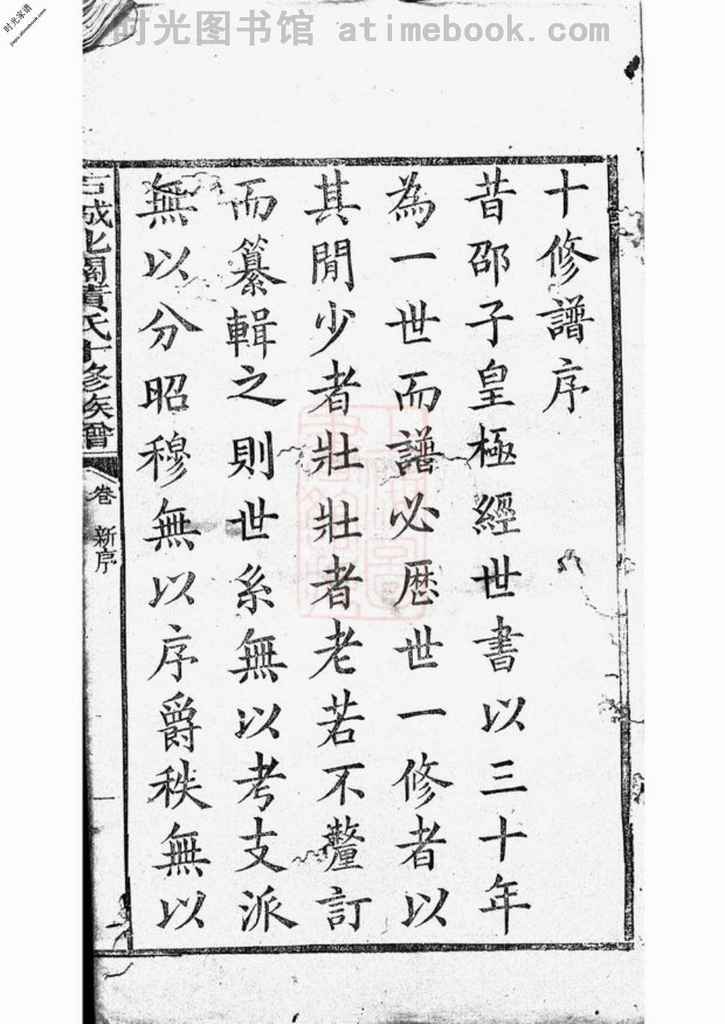 时光图书馆 atimebook.com
时光家谱
十修譜序
昔邵子皇極經世書以三十年
為一世而譜必歷世一修者以
其間少者壯壯者老若不釐訂
而纂輯之則世系無以考支派
無以分昭穆無以序爵秩無以
城北關黄氏十修族譜
卷 新序